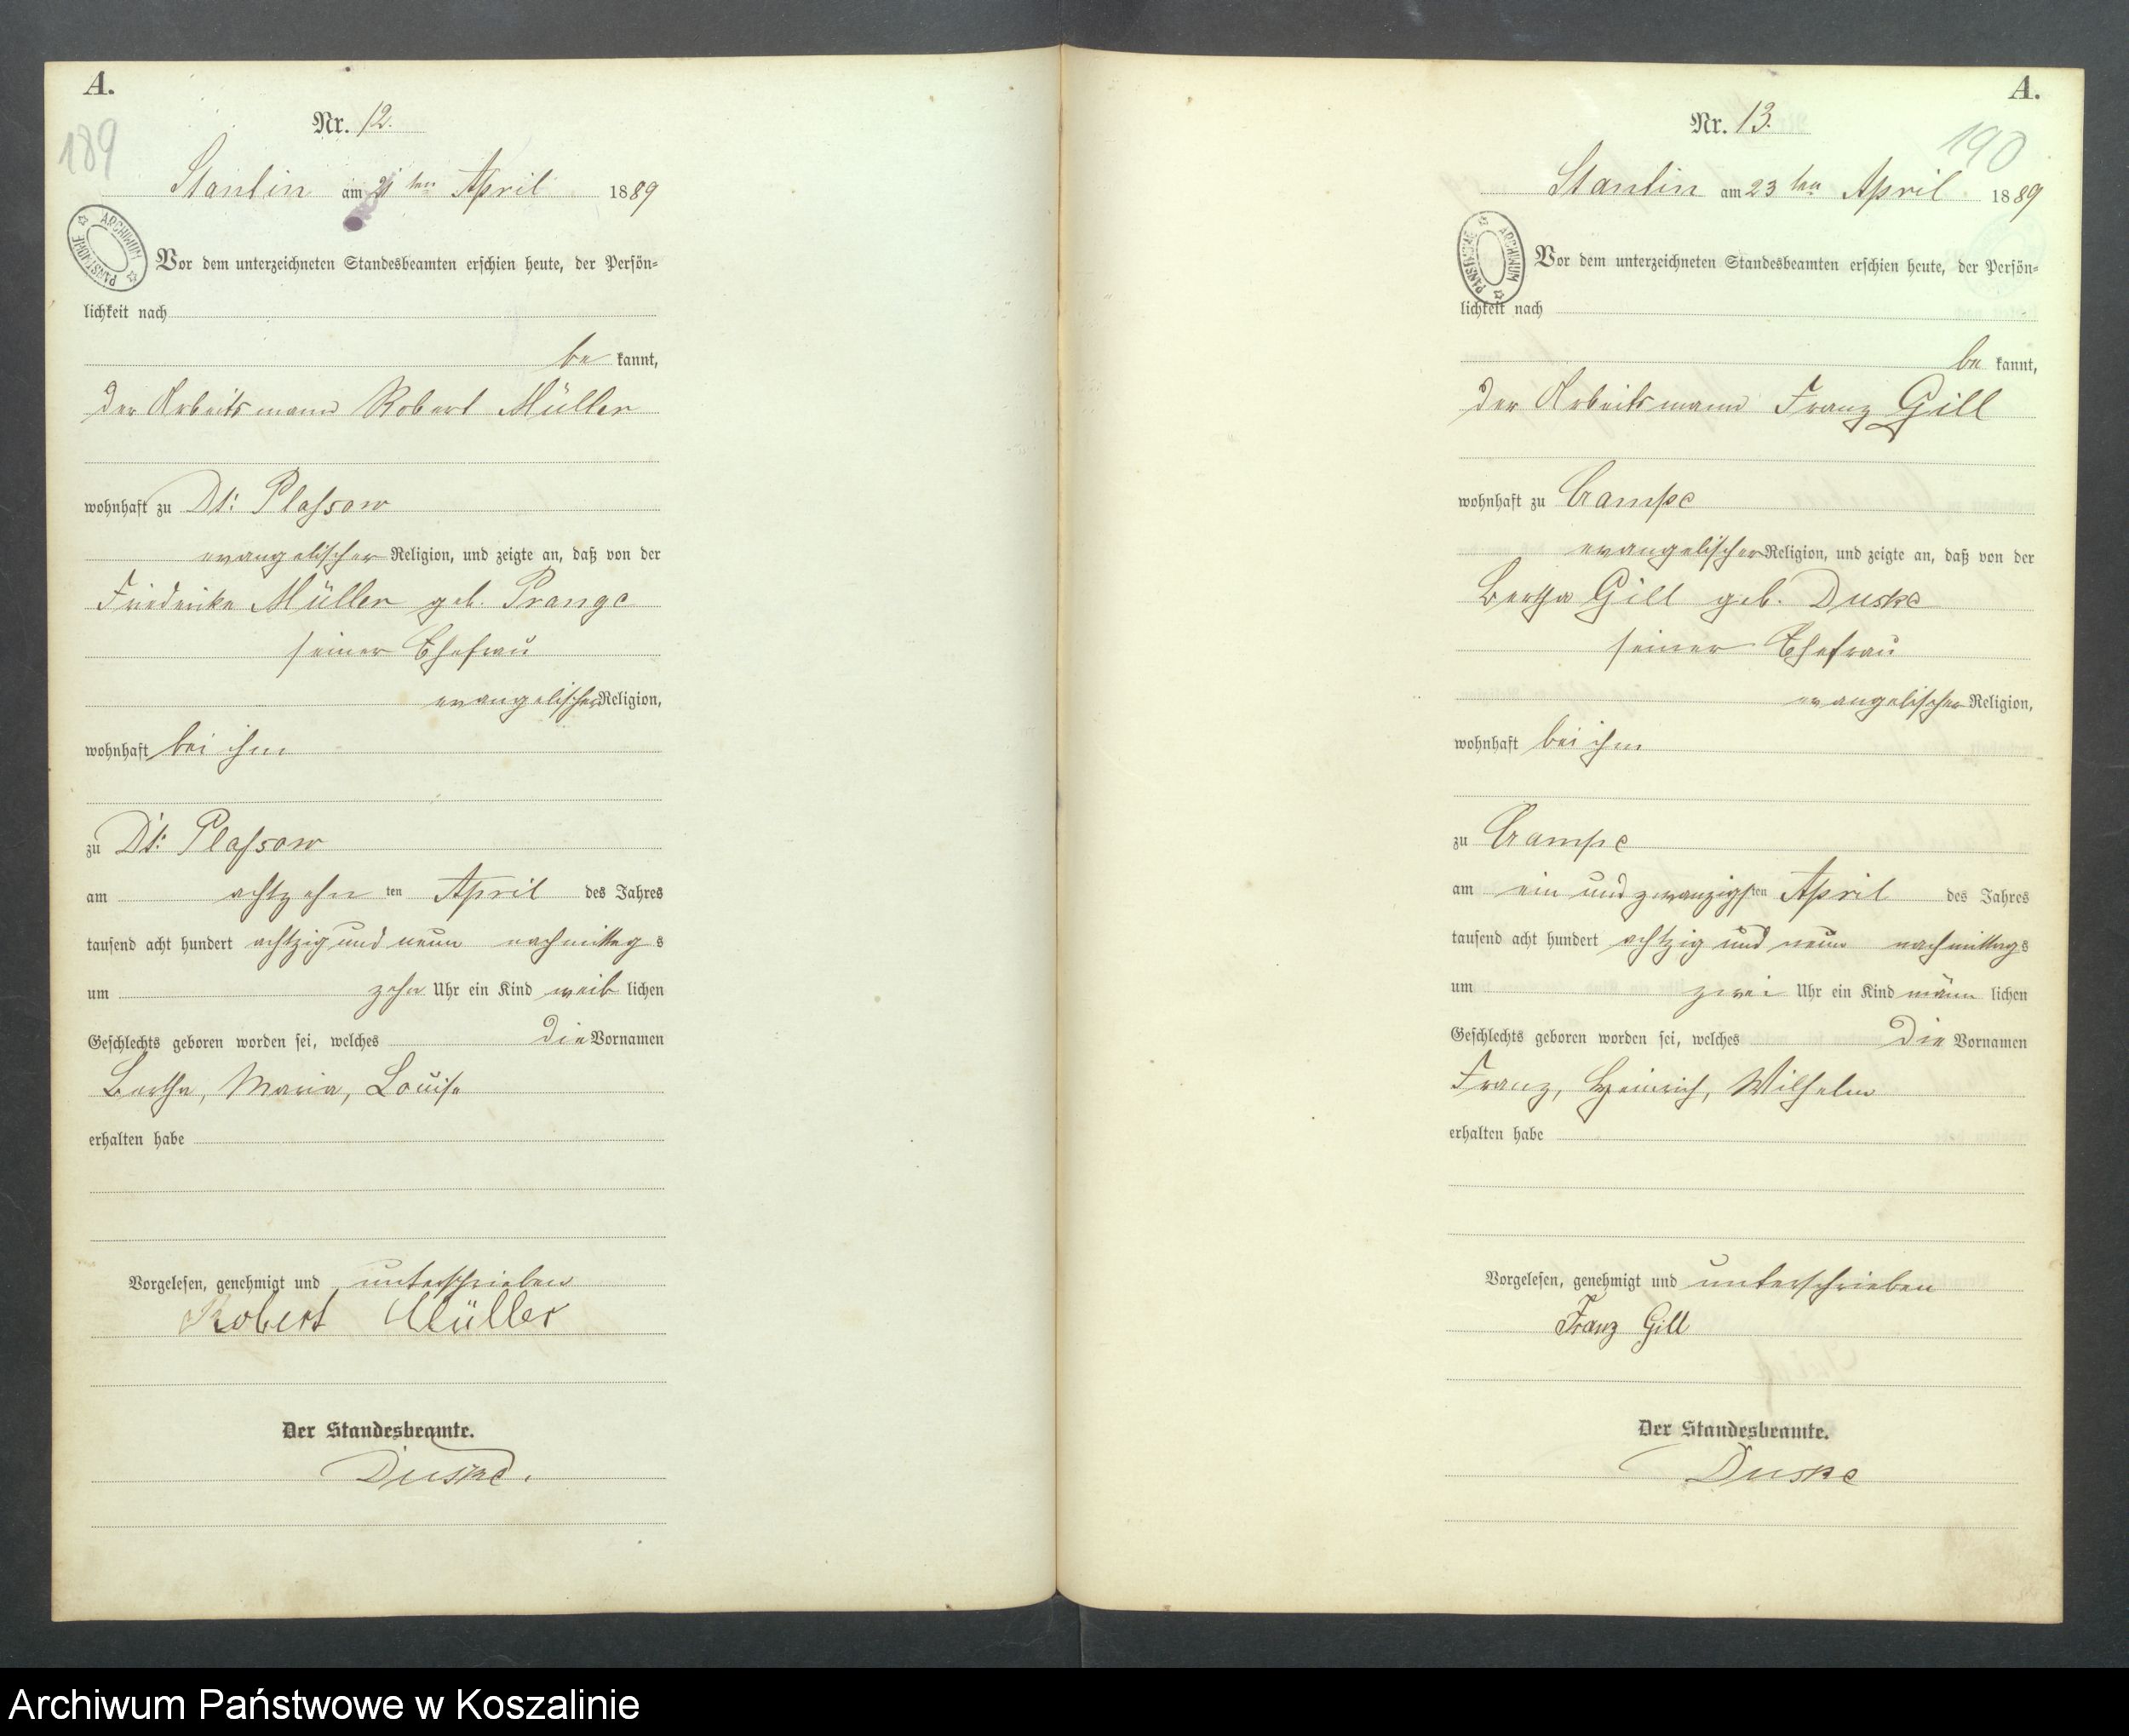 A.
189
Nr. 12.
Stantin am 21ten April 1889
ARCHIWUM PAŃSTWOWE
Vor dem unterzeichneten Standesbeamten erschien heute, der Persön=
lichkeit nach
be kannt,
der Arbeitsmann Robert Müller
wohnhaft zu Dt: Plassow
evangelischer Religion, und zeigte an, daß von der
Friederike Müller geb. Prange
seiner Ehefrau
evangelischer Religion,
wohnhaft bei ihm
zu Dt: Plassow
am achtzehn ten April des Jahres
tausend acht hundert achtzig und neun nachmittag s
um zehn Uhr ein Kind weib lichen
Geschlechts geboren worden sei, welches die Vornamen
Bertha, Maria, Louise
erhalten habe
Vorgelesen, genehmigt und unterschrieben
Robert Müller
Der Standesbeamte.
Duske.
A.
190
Nr. 13.
Stantin am 23ten April 1889
ARCHIWUM PAŃSTWOWE
Vor dem unterzeichneten Standesbeamten erschien heute, der Persön=
lichkeit nach
be kannt,
der Arbeitsmann Franz Gill
wohnhaft zu Crampe
evangelischer Religion, und zeigte an, daß von der
Bertha Gill geb. Duske
seiner Ehefrau
evangelischer Religion,
wohnhaft bei ihm
zu Crampe
am ein und zwanzigsten April des Jahres
tausend acht hundert achtzig und neun nachmittags
um zwei Uhr ein Kind männ lichen
Geschlechts geboren worden sei, welches die Vornamen
Franz, Heinrich, Wilhelm
erhalten habe
Vorgelesen, genehmigt und unterschrieben
Franz Gill
Der Standesbeamte.
Duske
Archiwum Państwowe w Koszalinie